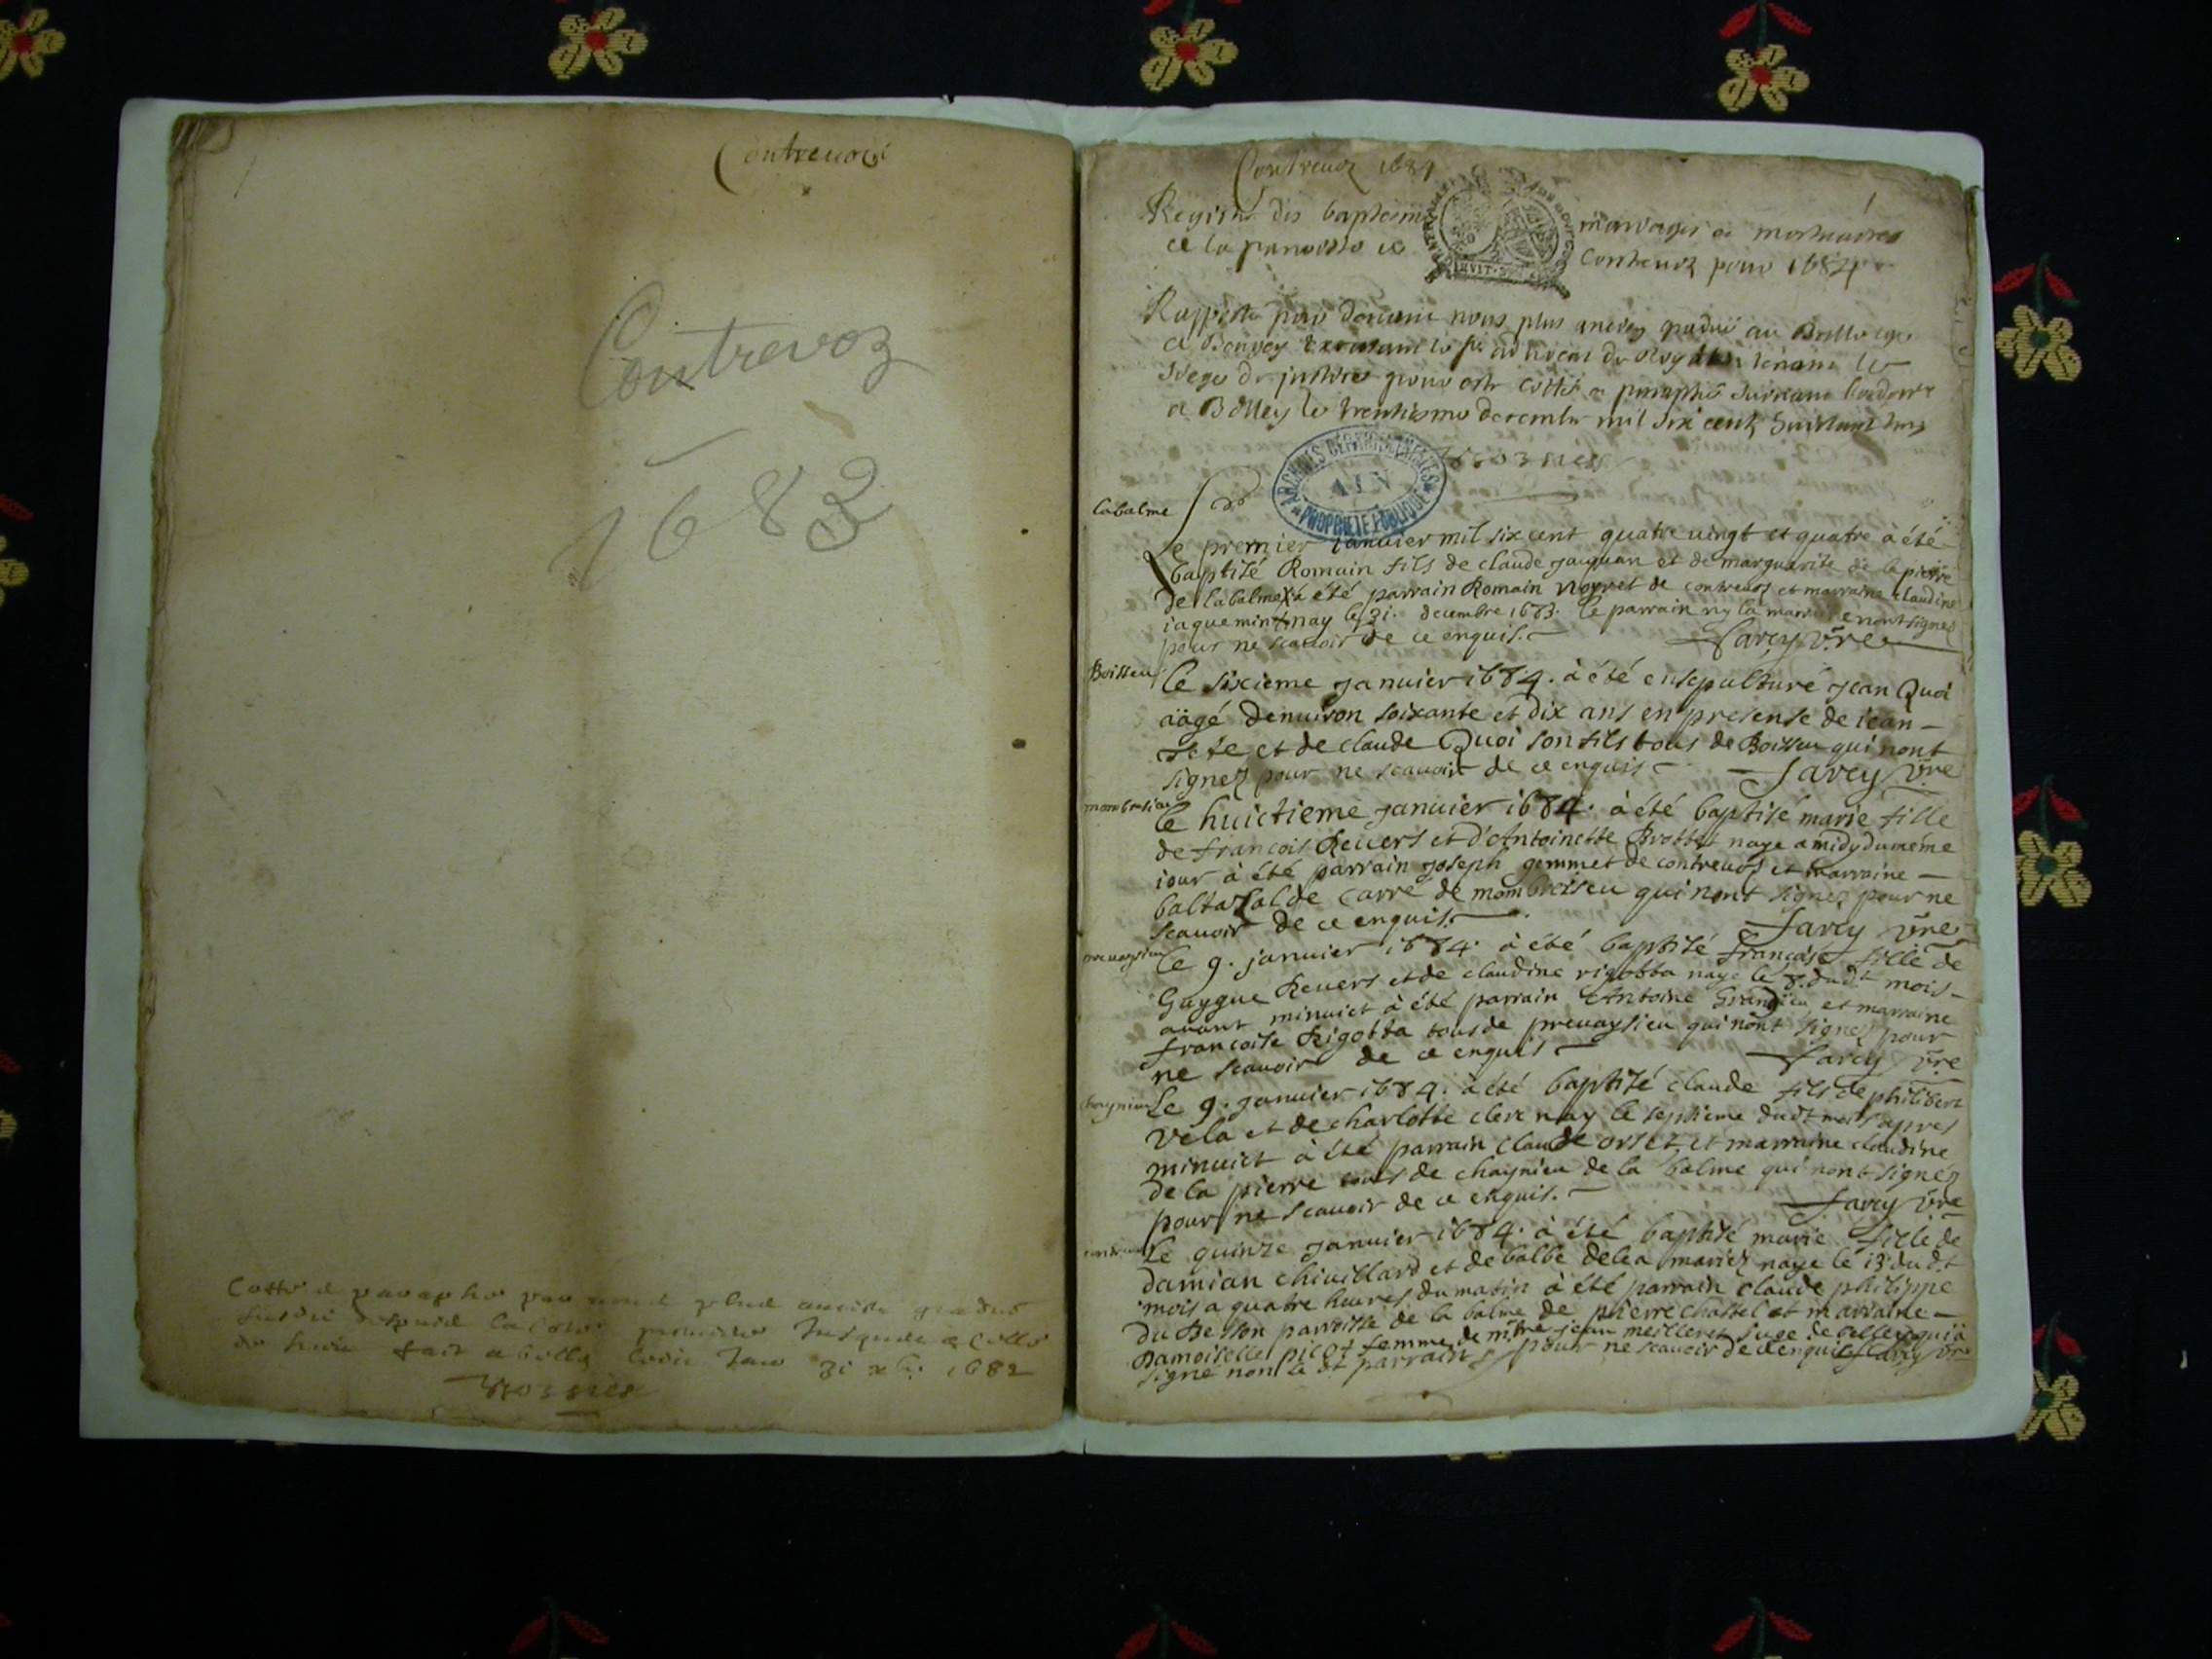 Contrevoz
Contrevoz
1683
Cotté et paraphé par nous plus ancien gradué
fait a belley 31 xbre 1682
Contrevoz 1684
1
Registre des baptesmes mariages et mortuaires
de la parroisse de Contrevoz pour 1684
plus ancien gradué au Bailliage
siege de justice pour estre cotté et paraphé
a Belley le trentiesme decembre mil six cent huictante trois
ARCHIVES DÉPARTEMENTALES
AIN
PROPRIÉTÉ PUBLIQUE
labalme
Le premier januier mil six cent quatre uingt et quatre à été
baptisé Romain fils de claude jaquan et de marguerite de la pierre
de labalme à été parrain Romain noyret de contreuoz et marraine claudine
iaquemin nay le 31. decembre 1683. le parrain ny la marraine nont signez
pour ne scauoir de ce enquis. Sarcy vre
Boisseu
Le sixieme januier 1684. à été ensepulturé jean Quoi
aägé denuiron soixante et dix ans en presense de iean
et de claude Quoi son fils tous de Boisseu qui nont
signez pour ne scauoir de ce enquis Sarcy vre
Le huictieme januier 1684. à été baptisé marie fille
de francois Reuers et d'Antoinette Brottet naye a midy du méme
iour à été parrain joseph gemmet de contreuoz et marraine
baltasalde carre de mombreiseu qui nont signez pour ne
scauoir de ce enquis. Sarcy vre
preuaysieu
Le 9. januier 1684. à été baptisé françoise fille de
Guygue Reuers et de claudine rigotta naye le 8. dudt mois
auant minuict à été parrain Antoine Grandieu et marraine
francoise Rigotta tous de preuaysieu qui nont signez pour
ne scauoir de ce enquis Sarcy vre
chaynieu
Le 9. januier 1684. à été baptisé claude fils de philibert
vela et de charlotte clerc nay le septieme dudt mois apres
minuict à été parrain claude orset et marraine claudine
de la pierre tous de chaynieu de la balme qui nont signez
pour ne scauoir de ce enquis. Sarcy vre
Le quinze januier 1684. à été baptisé marie fille de
damian chiuillard et de balbe delea mariez naye le 13 dudt
mois a quatre heures du matin à été parrain claude philippe
du Besson parroisse de la balme de pierre chastel et marraine
Damoiselle picot femme de mitre jean meilleret juge de belley qui à
signé non le dt parrain pour ne scauoir de ce enquis Sarcy vre